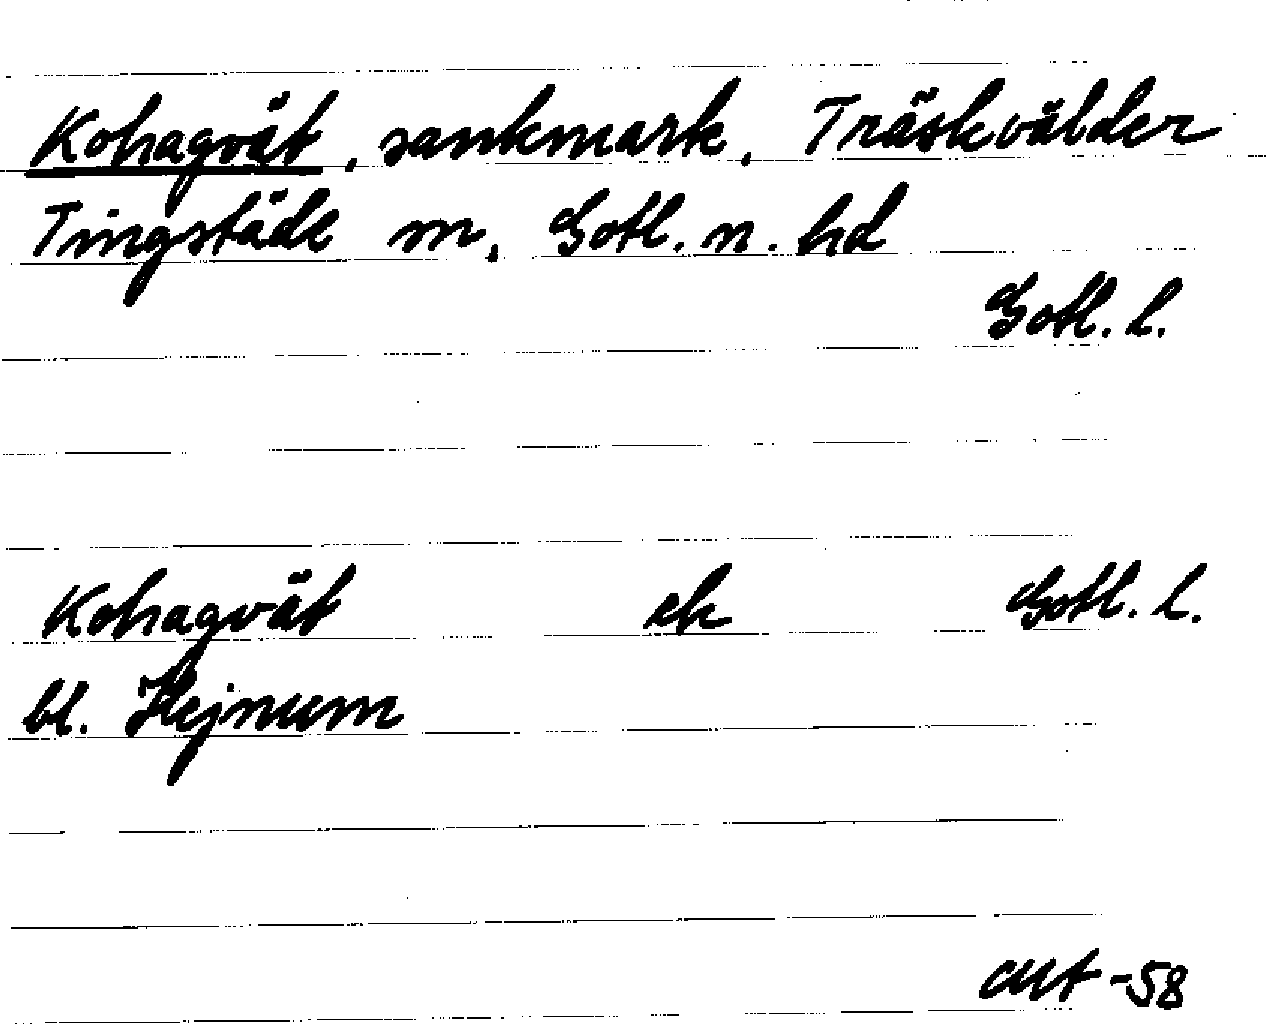 Kohagvät, sankmark, Träskvälder
Tingstäde m, Gotl. n. hd
Gotl. l.
Kohagvät ek Gotl. l.
bl. Hejnum
-58